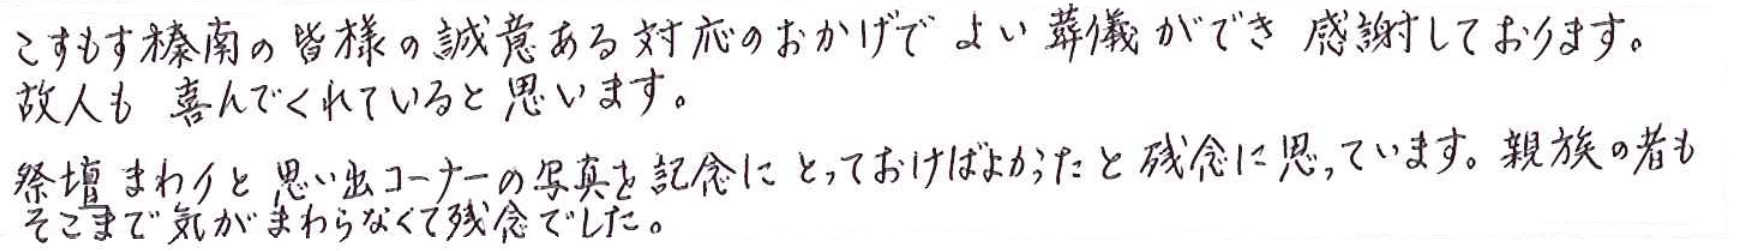 こすもす榛南の皆様の誠意ある対応のおかげで よい葬儀ができ 感謝しております。
故人も 喜んでくれていると思います。
祭壇まわりと思い出コーナーの写真を記念にとっておけばよかったと残念に思っています。親族の者も
そこまで気がまわらなくて残念でした。